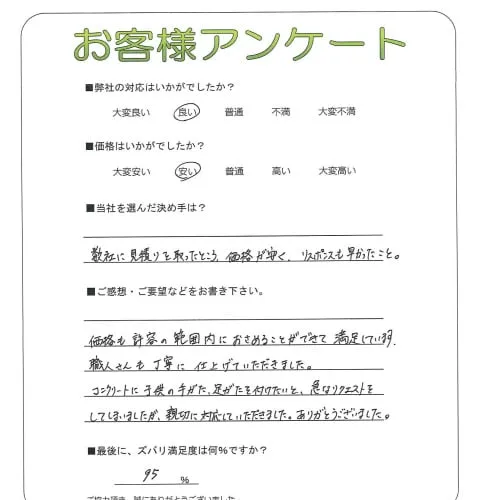 お客様アンケート
■弊社の対応はいかがでしたか？
大変良い 良い 普通 不満 大変不満
■価格はいかがでしたか？
大変安い 安い 普通 高い 大変高い
■当社を選んだ決め手は？
数社に見積りを取ったところ、価格が安く、リスポンスも早かったこと。
■ご感想・ご要望などをお書き下さい。
価格も許容の範囲内におさめることができて満足しています.
職人さんも丁寧に仕上げていただきました。
コンクリートに子供の手がた、足がたを付けたいと、急なリクエストを
してしまいましたが、親切に対応していただきました。ありがとうございました。
■最後に、ズバリ満足度は何%ですか？
95 %
ご協力頂き、誠にありがとうございました